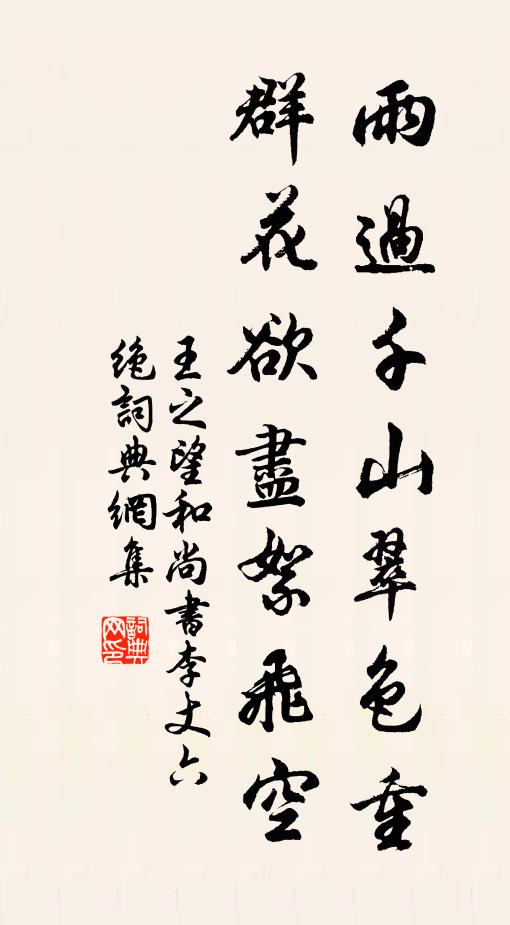 雨過千山翠色重
群花欲盡絮飛空
王之望和尚書李丈六
絶詞典網集
詞典网印